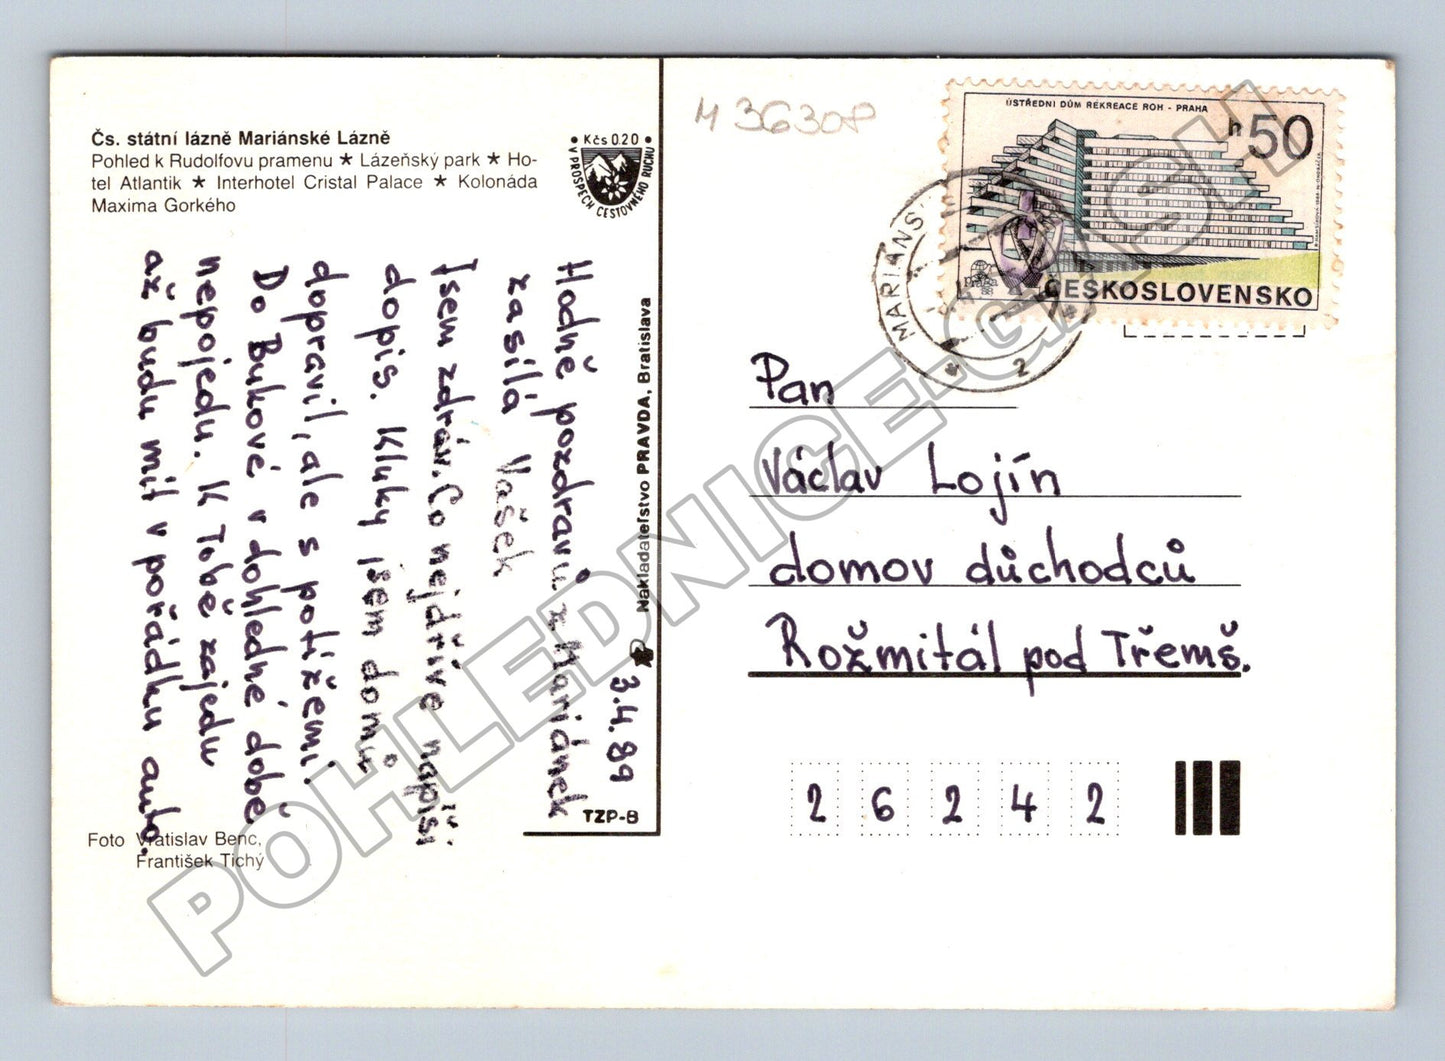 Čs. státní lázně Mariánské Lázně
Pohled k Rudolfovu pramenu ★ Lázeňský park ★ Ho-
tel Atlantik ★ Interhotel Cristal Palace ★ Kolonáda
Maxima Gorkého
• Kčs 0.20 •
V PROSPECH CESTOVNÉHO RUCHU
3.4.89
Hodně pozdravů z Mariánek
zasílá Vašek
Jsem zdráv. Co nejdříve napíši
dopis. Kluky jsem domů
dopravil, ale s potížemi.
Do Bukové v dohledné době
nepojedu. K Tobě zajedu
až budu mít v pořádku auto.
Nakladateľstvo PRAVDA, Bratislava
TZP-8
Foto Vratislav Benc,
František Tichý
M 3630P
ÚSTŘEDNÍ DŮM REKREACE ROH - PRAHA
h 50
praga
88
ČESKOSLOVENSKO
MARIÁNS
2
Pan
Václav Lojín
domov důchodců
Rožmitál pod Třemš.
2 6 2 4 2
POHLEDNICE-GASH